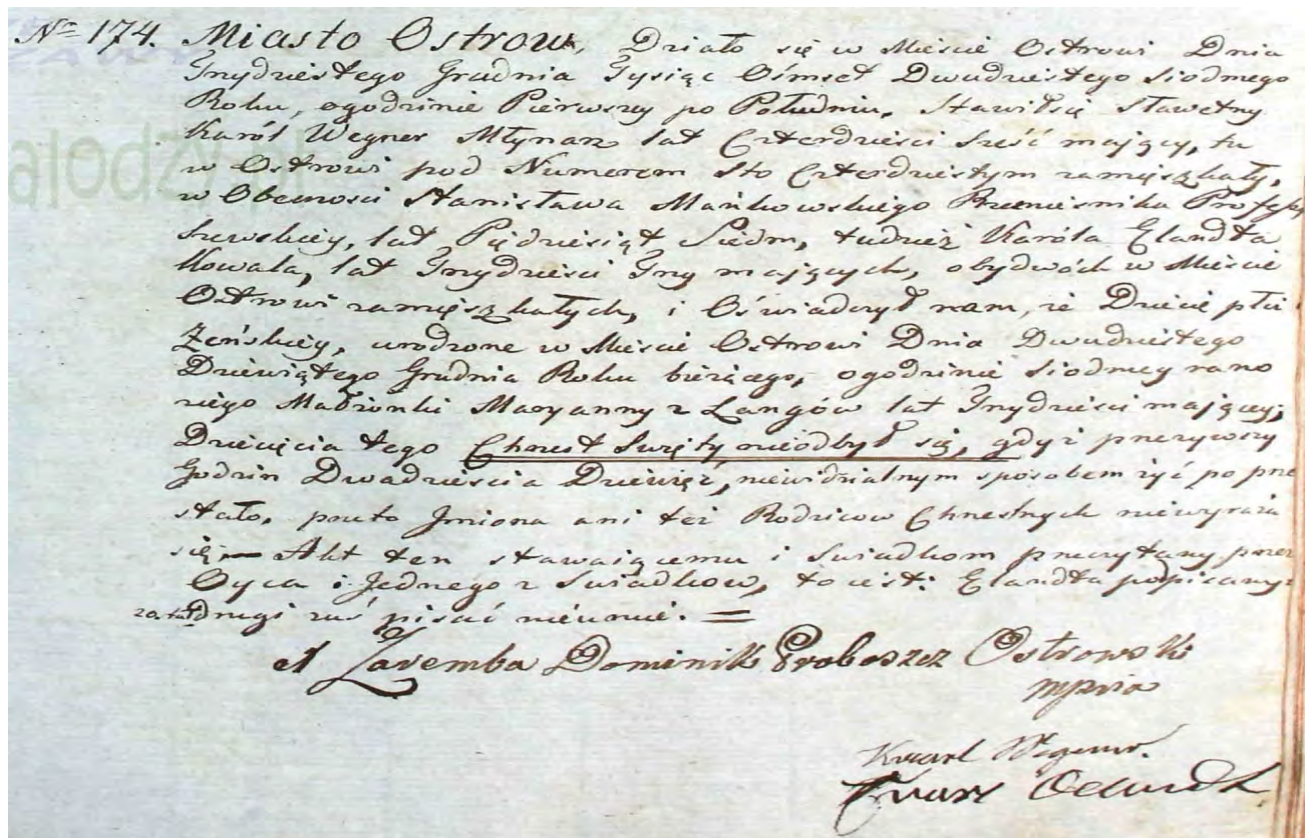 No 174. Miasto Ostrow, Działo się w Mieście Ostrowi Dnia
Trzydziestego Grudnia Tysiąc Ośmset Dwudziestego Siodmego
Roku, ogodzinie Pierwszey po Południu, Stawił się Sławetny
Karól Wegner Młynarz lat Czterdzieści Sześć maiący, tu
w Ostrowi pod Numerem Sto Czterdziestym zamięszkały,
w Obecnosci Stanisława Mańkowskiego Rzemieśnika Profesyi
Szewskiey, lat Piędziesiąt Siedm, tudzież Karóla Elandta
Kowala, lat Trzydzieści Trzy maiących, obydwóch w Mieście
Ostrowi zamięszkałych, i Oświadczył nam, że Dziecię płci
Żeńskiey, urodzone w Mieście Ostrowi Dnia Dwudziestego
Dziewiątego Grudnia Roku bieżącego, ogodzinie Siodmey rano
ziego Małżonki Maryanny z Langów lat Trzydzieści maiącey;
Dziecięcia tego Chrzest Święty nieodbył się, gdyż przeżywszy
Godzin Dwadzieścia Dziewięć, niewidzialnym sposobem żyć poprze
stało, przeto Jmiona ani też Rodzicow Chrzestnych niewyraża
się — Akt ten stawaiącemu i Swiadkom przeczytany, przez
Oyca i Jednego z Swiadkow, to iest: Elandta popisany
drugi zaś pisać nieumie. =
X Zaremba Dominik Proboszcz Ostrowski
mpria
Karl Wegner.